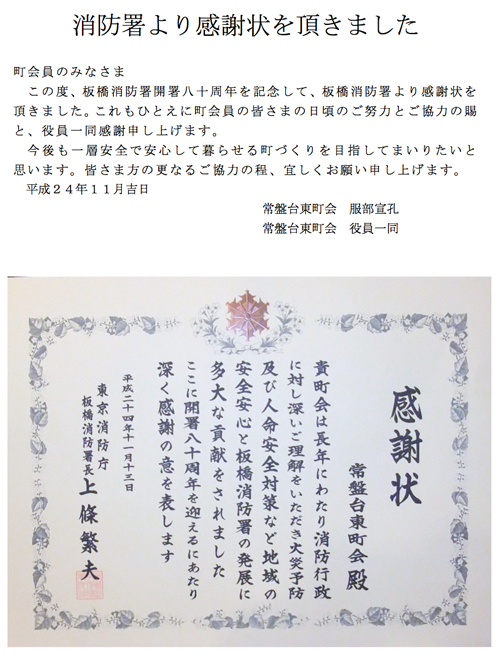 消防署より感謝状を頂きました
町会員のみなさま
　この度、板橋消防署開署八十周年を記念して、板橋消防署より感謝状を
頂きました。これもひとえに町会員の皆さまの日頃のご努力とご協力の賜
と、役員一同感謝申し上げます。
　今後も一層安全で安心して暮らせる町づくりを目指してまいりたいと
思います。皆さま方の更なるご協力の程、宜しくお願い申し上げます。
平成２４年１１月吉日
常盤台東町会　服部宣孔
常盤台東町会　役員一同
感謝状
常盤台東町会殿
貴町会は長年にわたり消防行政
に対し深いご理解をいただき火災予防
及び人命安全対策など地域の
安全安心と板橋消防署の発展に
多大な貢献をされました
ここに開署八十周年を迎えるにあたり
深く感謝の意を表します
平成二十四年十一月十三日
東京消防庁
板橋消防署長 上條繁夫